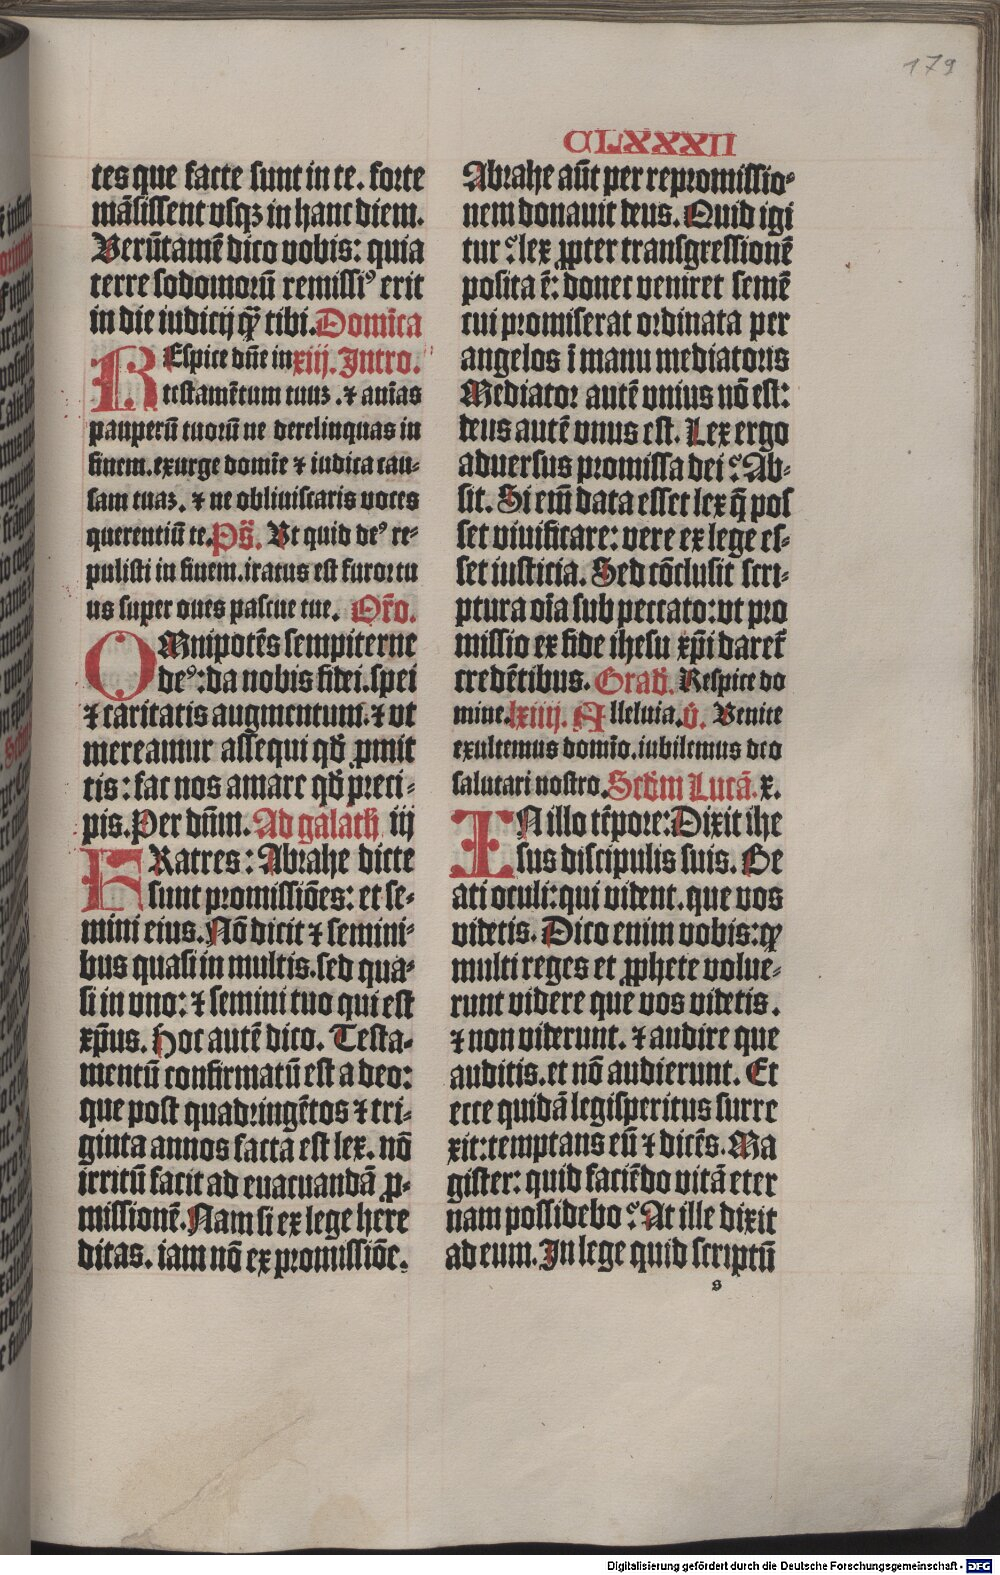 179
CLXXXII
tes que facte sunt in te. forte
mãsissent vsqꝫ in hanc diem.
Verũtamẽ dico vobis: quia
terre sodomorũ remissiꝰ erit
in die iudicij qꝫ̃ tibi. Domĩca
REspice dñe in xiij. Intro.
testamẽtum tuuꝫ. ⁊ aĩas
pauperũ tuorũ ne derelinquas in
finem. exurge domĩe ⁊ iudica cau⸗
sam tuaꝫ. ⁊ ne obliuiscaris voces
querentiũ te. Ps̃. Vt quid deꝰ re⸗
pulisti in finem. iratus est furor tu
us super oues pascue tue. Or̃o.
OMnipotẽs sempiterne
deꝰ: da nobis fidei. spei
⁊ caritatis augmentum. ⁊ vt
mereamur assequi qđ ꝓmit
tis: fac nos amare qđ preci⸗
pis. Per dñm. Ad galath̃ iij
FRatres: Abrahe dicte
sunt promissiões: et se⸗
mini eius. Nõ dicit ⁊ semini⸗
bus quasi in multis. sed qua⸗
si in vno: ⁊ semini tuo qui est
xp̃us. hoc autẽ dico. Testa⸗
mentũ confirmatũ est a deo:
que post quadringẽtos ⁊ tri⸗
ginta annos facta est lex. nõ
irritũ facit ad euacuandã ꝓ⸗
missionẽ. Nam si ex lege here
ditas. iam nõ ex promissiõe.
Abrahe aũt per repromissio⸗
nem donauit deus. Quid igi
tur? lex ꝓpter transgressionẽ
posita ẽ: donec veniret semẽ
cui promiserat ordinata per
angelos ĩ manu mediatoris
Mediator autẽ vnius nõ est:
deus autẽ vnus est. Lex ergo
aduersus promissa dei? Ab⸗
sit. Si em̃ data esset lex q̃ pos
set viuificare: vere ex lege es⸗
set iusticia. Sed cõclusit scri⸗
ptura oĩa sub peccato: vt pro
missio ex fide ihesu xp̃i daret̃
credẽtibus. Grad̃. Respice do
mine. lxiiij. Alleluia. v̾. Venite
exultemus domĩo. iubilemus deo
salutari nostro. Scdm̃ Lucã. x.
IN illo tẽpore: Dixit ihe
sus discipulis suis. Be
ati oculi: qui vident. que vos
videtis. Dico enim vobis: qꝫ
multi reges et ꝓphete volue⸗
runt videre que vos videtis.
⁊ non viderunt. ⁊ audire que
auditis. et nõ audierunt. Et
ecce quidã legisperitus surre
xit: temptans eũ ⁊ dicẽs. Ma
gister: quid faciẽdo vitã eter
nam possidebo? At ille dixit
ad eum. In lege quid scriptũ
s
Digitalisierung gefördert durch die Deutsche Forschungsgemeinschaft - DFG